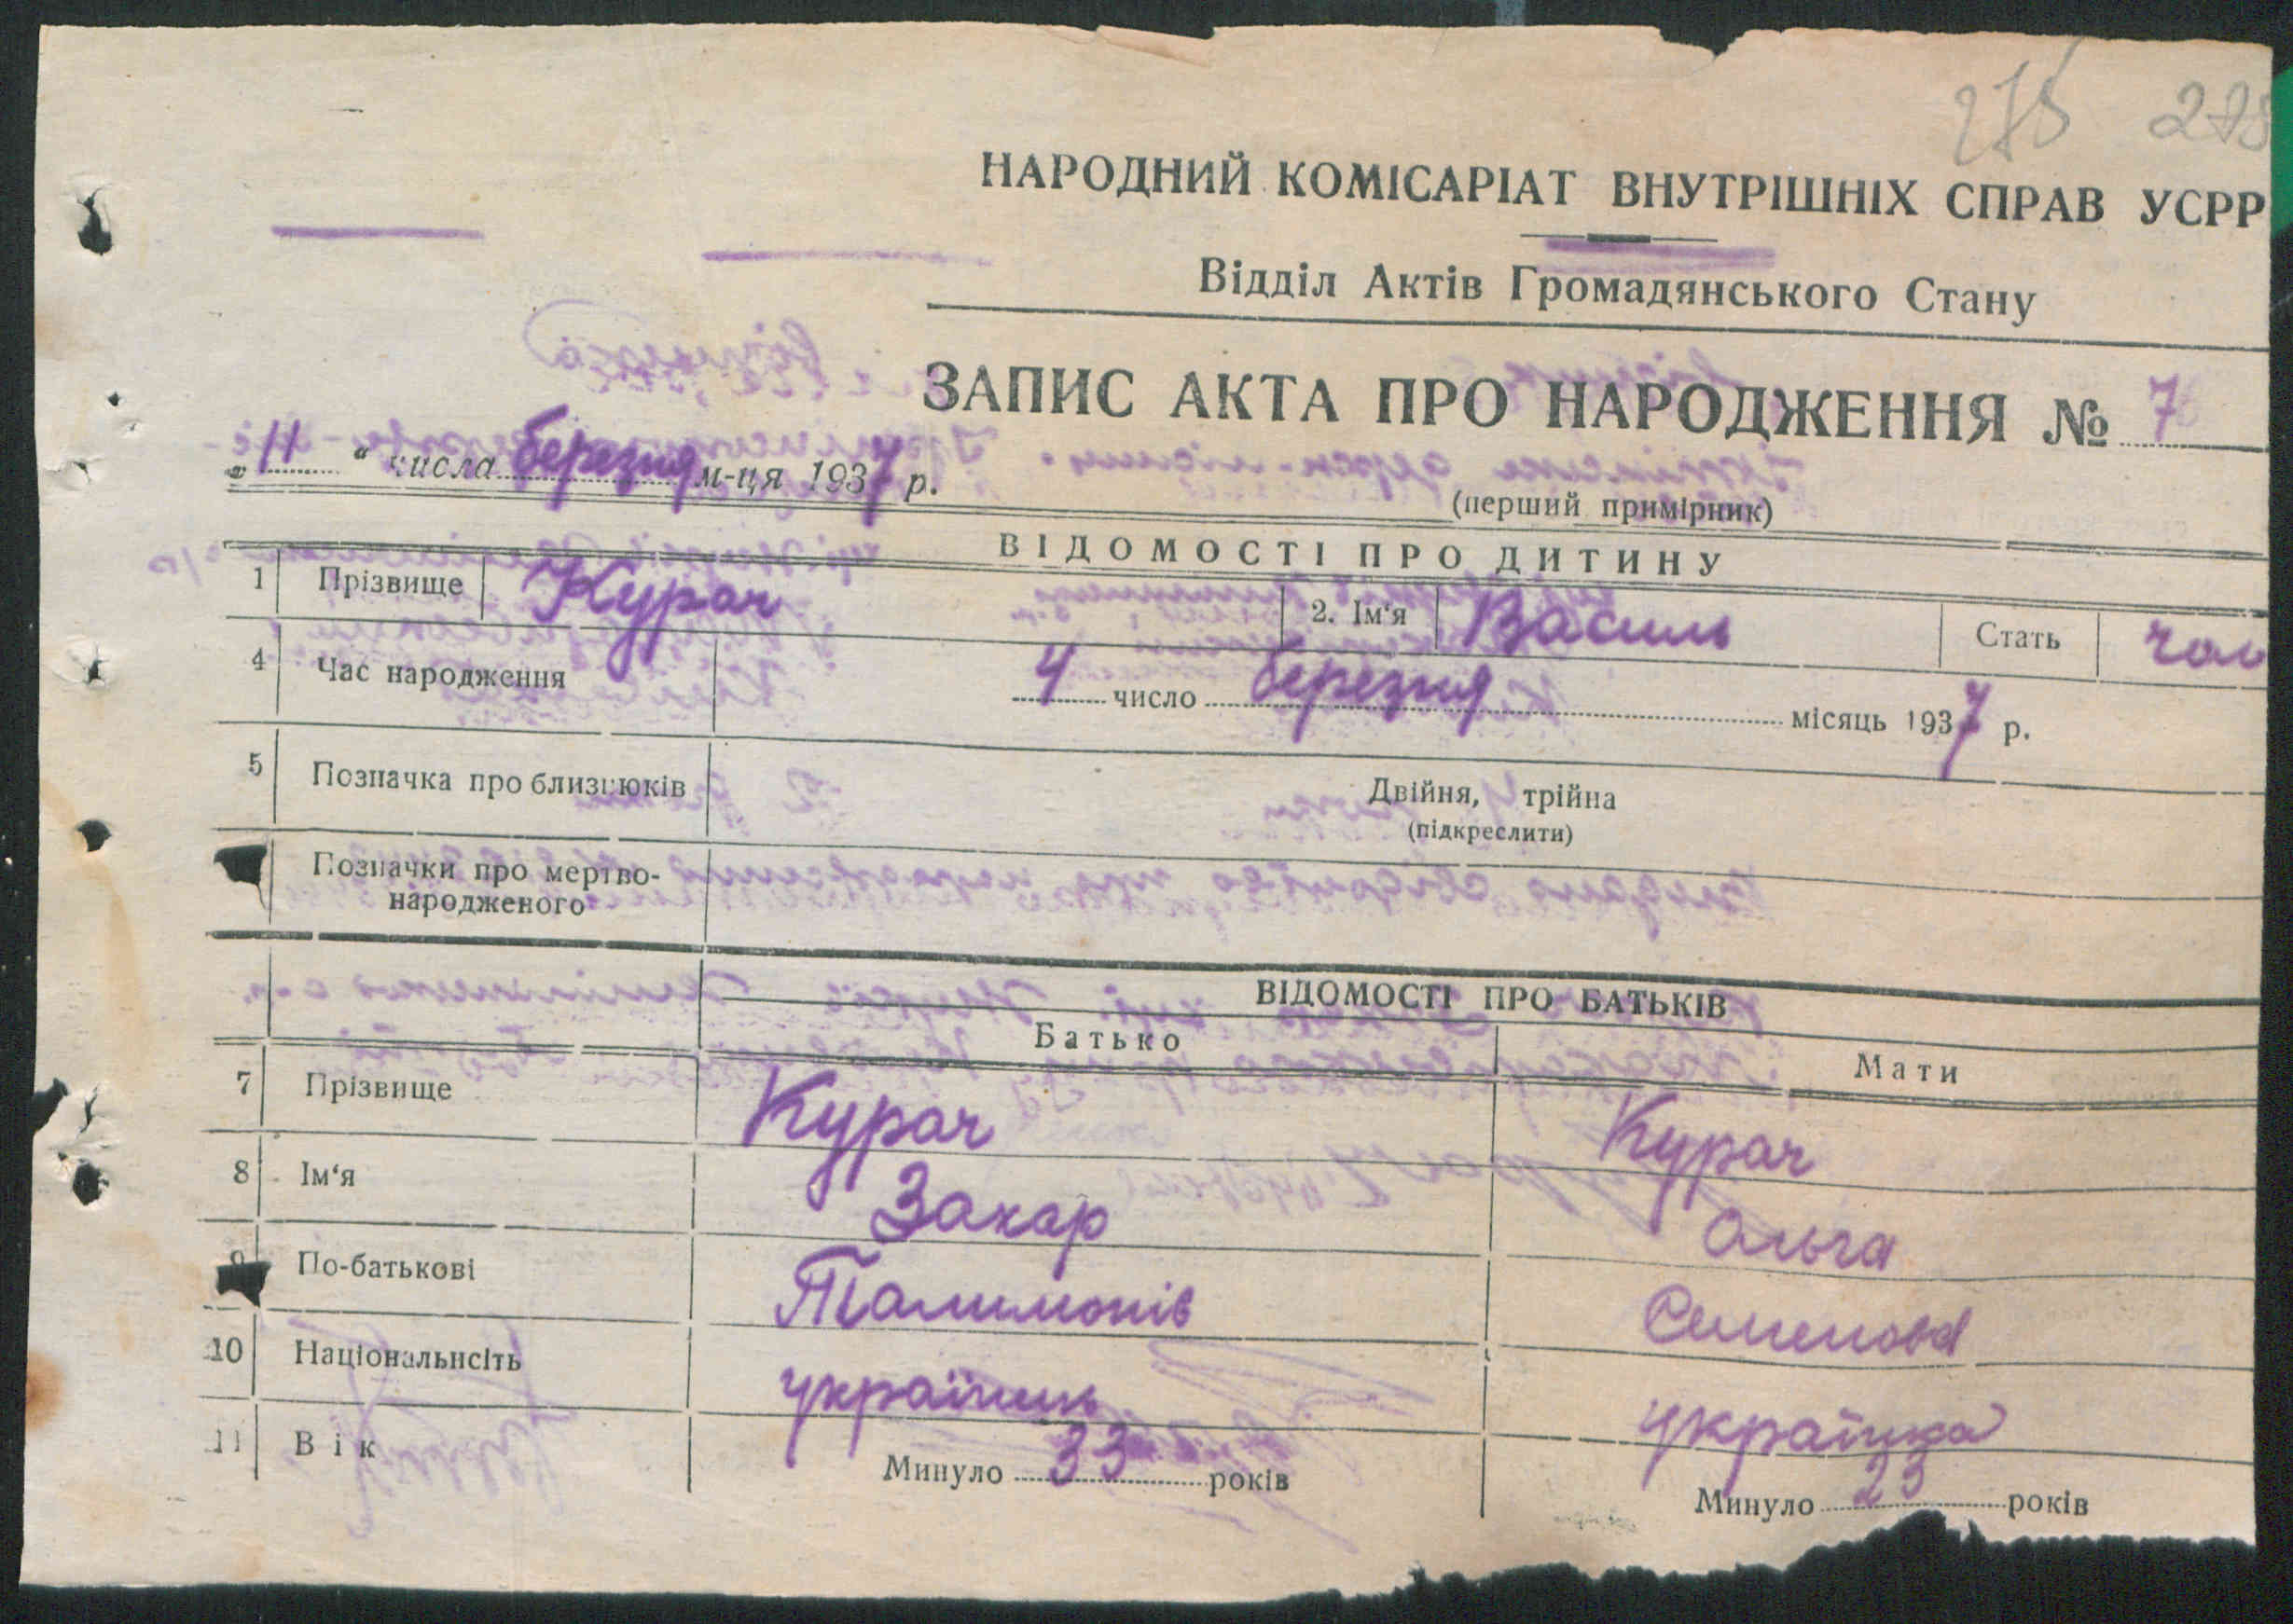 275 278
НАРОДНИЙ КОМІСАРІАТ ВНУТРІШНІХ СПРАВ УСРР
Відділ Актів Громадянського Стану
ЗАПИС АКТА ПРО НАРОДЖЕННЯ № 7
„ 11 “ числа березня м-ця 1937 р.
(перший примірник)
ВІДОМОСТІ ПРО ДИТИНУ
1 Прізвище Курач 2. Ім‘я Василь Стать чол
4 Час народження 4 число березня місяць 1937 р.
5 Позначка про близнюків Двійня, трійна
(підкреслити)
Позначки про мертво-
народженого
ВІДОМОСТІ ПРО БАТЬКІВ
Батько Мати
7 Прізвище Курач Курач
8 Ім‘я Захар Ольга
9 По-батькові Талимонів Семенова
10 Національнсіть українць українка
11 Вік Минуло 33 років Минуло 23 років